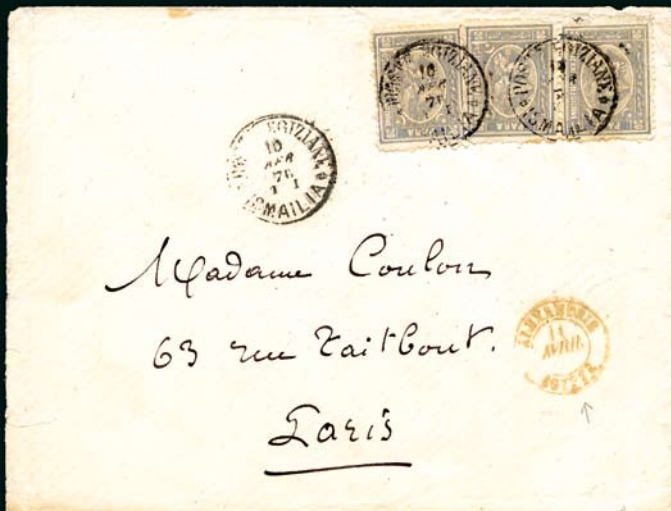 POSTE EGIZIANE
10
APR
76
ISMAILIA
POSTE EGIZIANE
ISMAILIA
POSTE EGIZIANE
10
APR
76
T I
ISMAILIA
Madame Coulon
63 rue Taitbout.
Paris
ALEXANDRIE
11
AVRIL
EGYPTE